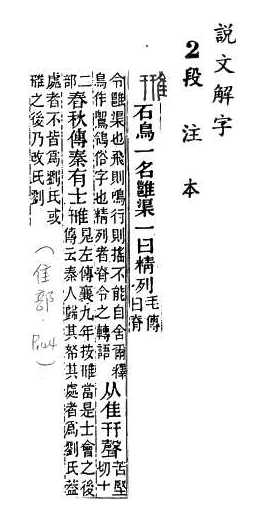 說文解字
2段注本
雃
石鳥一名雝渠一曰精列毛傳曰脊
令雝渠也飛則鳴行則搖不能自舍爾釋鳥作鶺鴒俗字也精列者脊令之轉語从隹幵聲苦堅切十
二部春秋傳秦有士雃見左傳襄九年按雃當是士會之後傳云秦人歸其帑其處者爲劉氏蓋
處者不皆爲劉氏或雃之後乃改氏劉
(隹部.